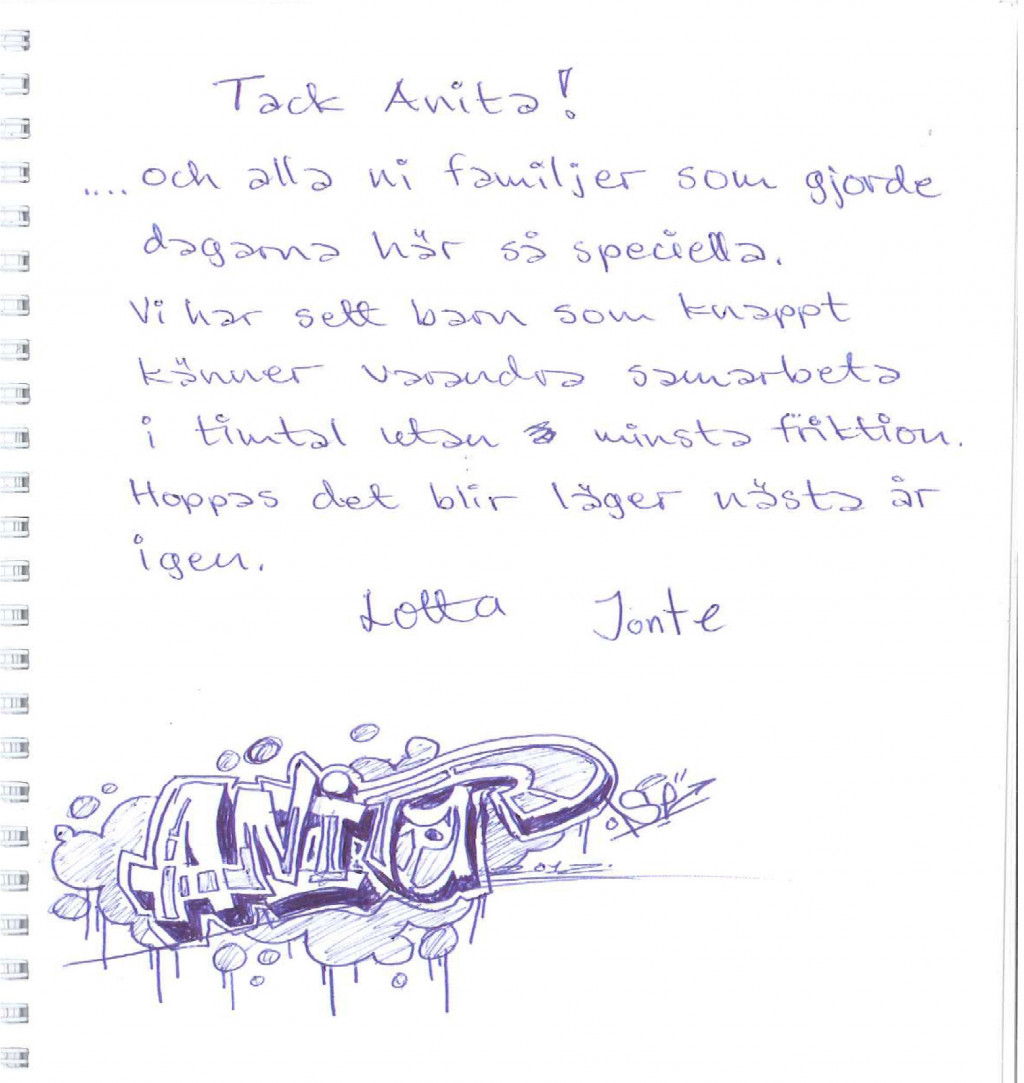 Tack Anita!
.... och alla ni familjer som gjorde
dagarna här så speciella.
Vi har sett barn som knappt
känner varandra samarbeta
i timtal utan minsta friktion.
Hoppas det blir läger nästa år
igen.
Lotta Jonte
ANiTA